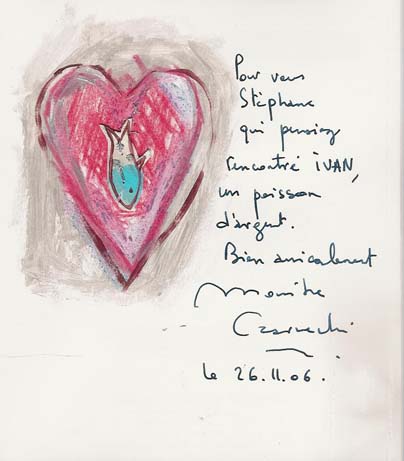 Pour vous
Stéphane
qui pensiez
rencontré IVAN,
un poisson
d'argent.
Bien amicalement
Czarnecki
le 26.11.06.